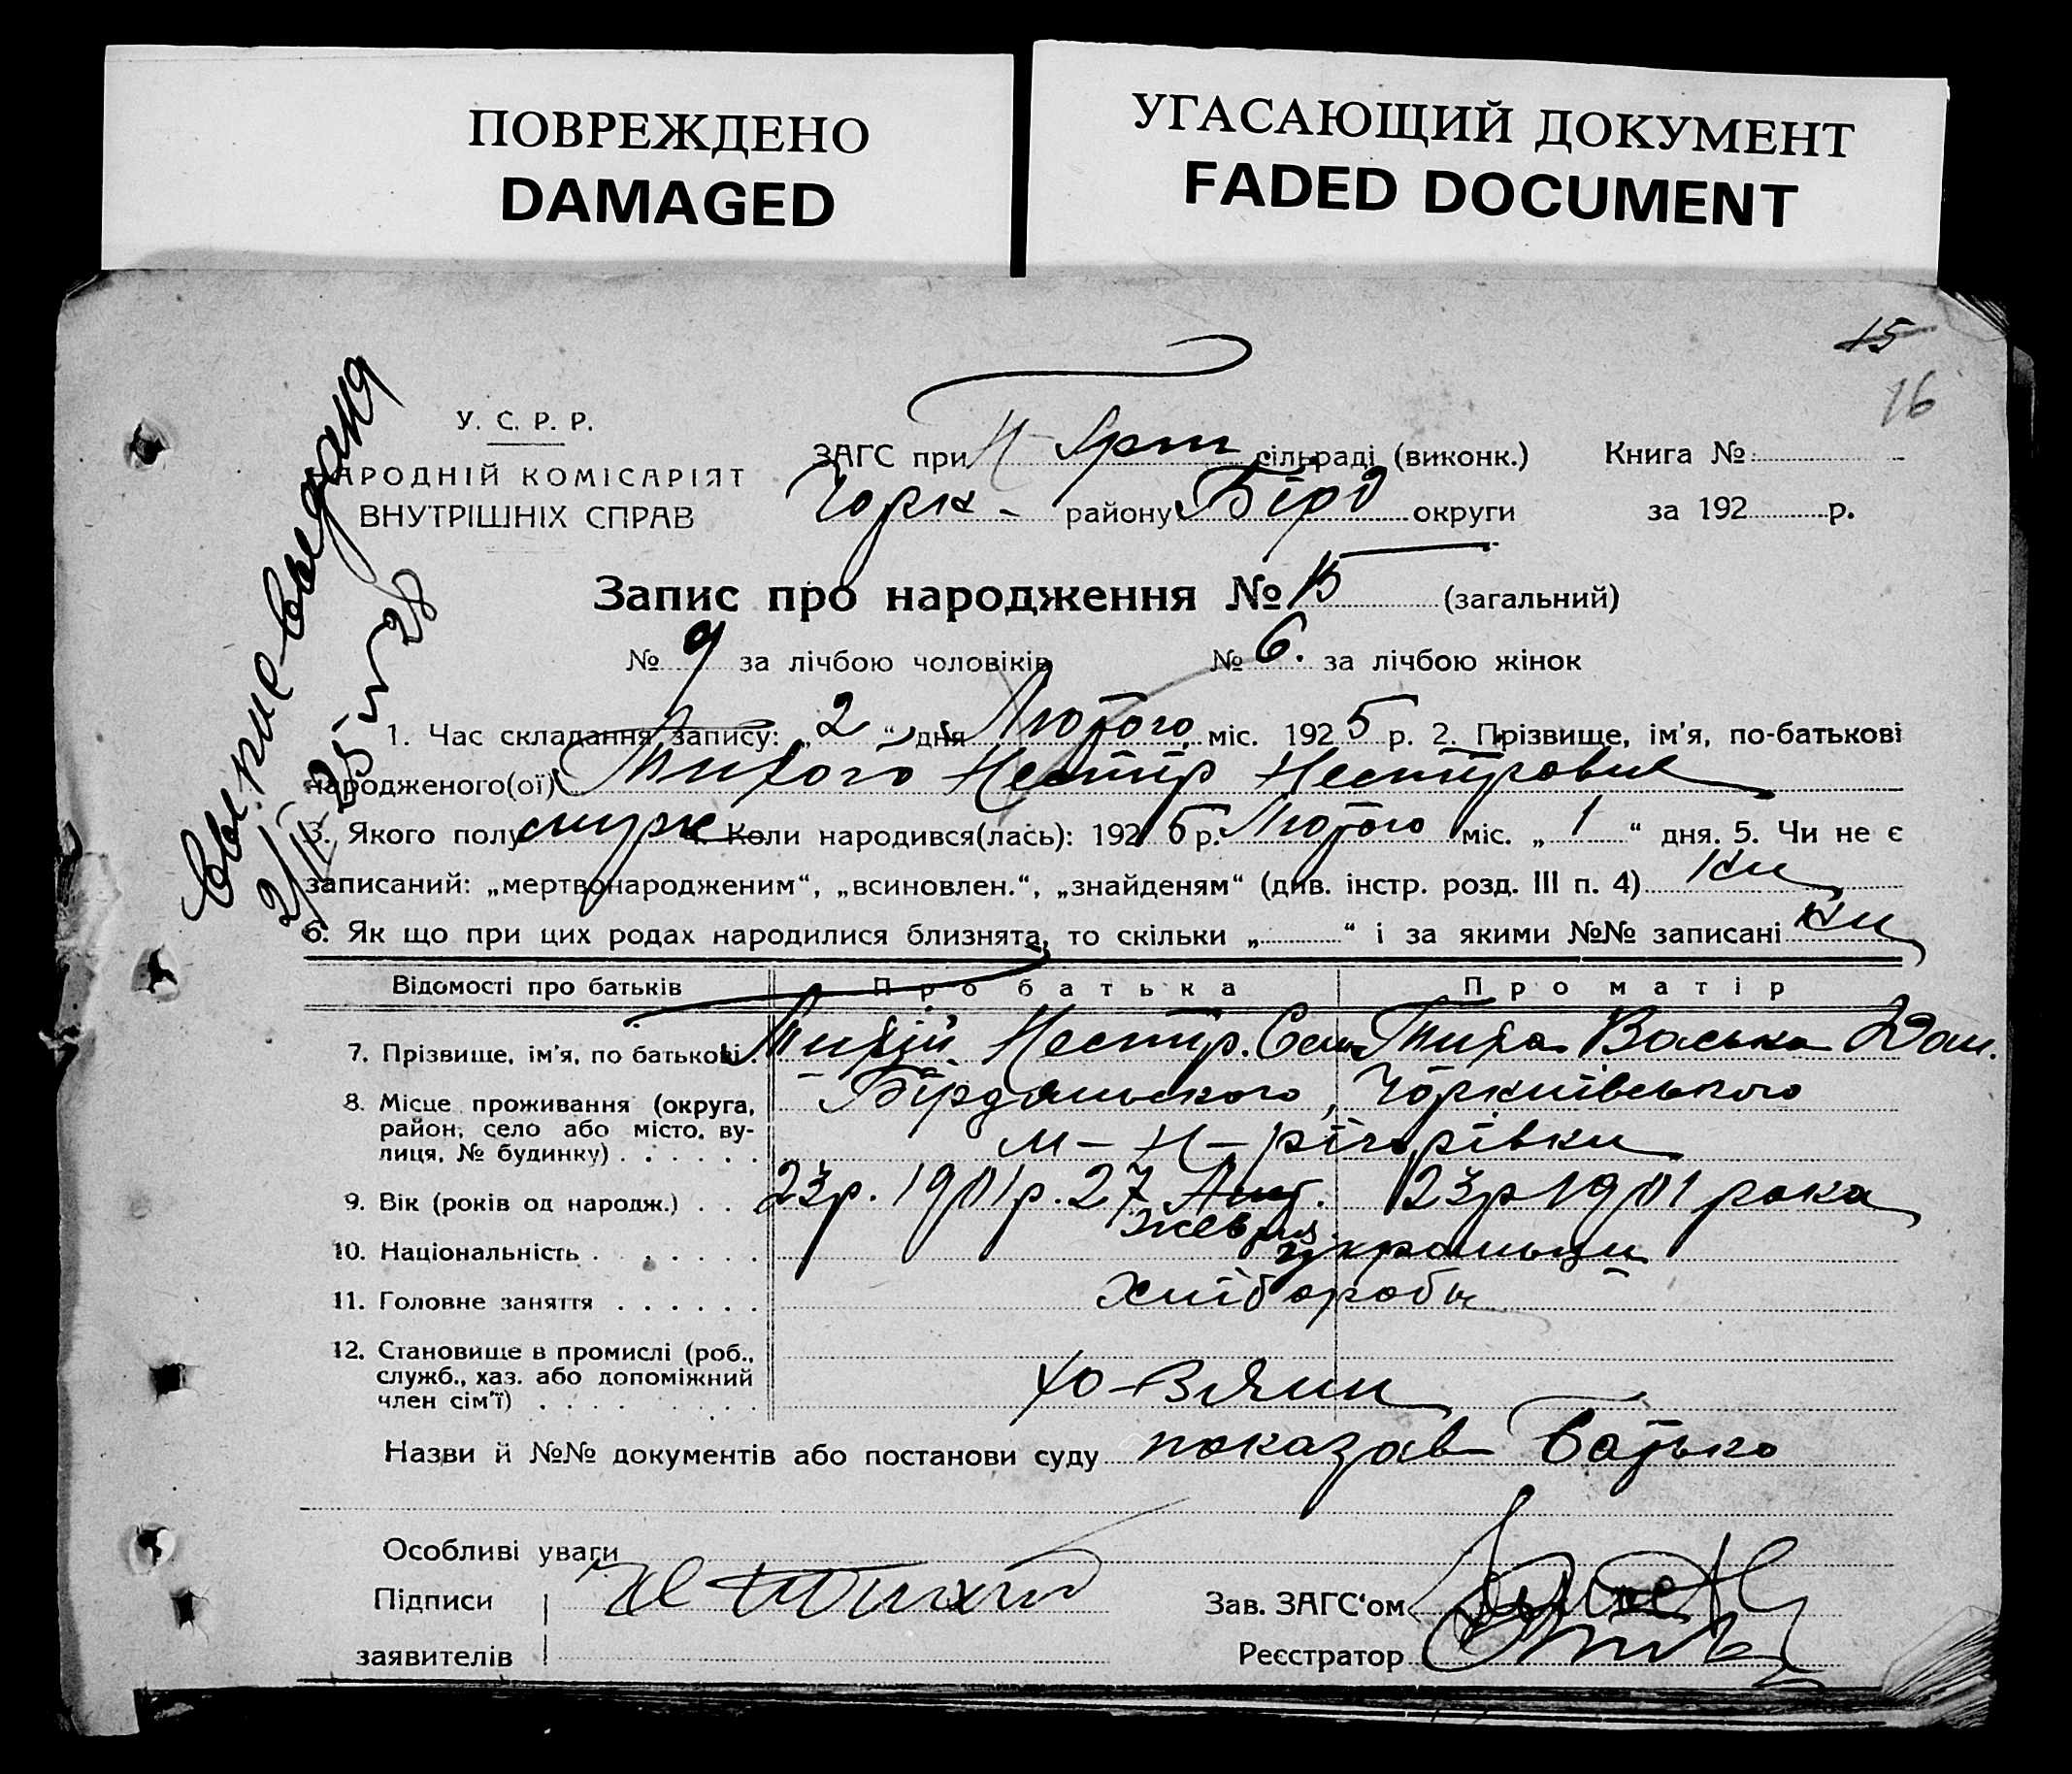 ПОВРЕЖДЕНО
DAMAGED
УГАСАЮЩИЙ ДОКУМЕНТ
FADED DOCUMENT
15
16
У. С. Р. Р.
НАРОДНІЙ КОМІСАРІЯТ
ВНУТРІШНІХ СПРАВ
ЗАГС при сільраді (виконк.) Книга №
району Бірд округи за 192 р.
Запис про народження № 15 (загальний)
№ 9 за лічбою чоловіків № 6. за лічбою жінок
1. Час складання запису: „2“ дня Лютого міс. 1925 р. 2. Прізвище, ім'я, по-батькові
народженого(ої) Тихого Нестір Нестірович
3. Якого полу муж 4. Коли народився(лась): 1925 р. Лютого міс. „1“ дня. 5. Чи не є
записаний: „мертвонародженим“, „всиновлен.“, „знайденям“ (див. інстр. розд. III п. 4)
6. Як що при цих родах народилися близнята, то скільки „ “ і за якими №№ записані
Відомості про батьків Про батька Про матір
7. Прізвище, ім'я, по батькові Тихій Нестір. Сем Тиха Васька Дан.
8. Місце проживання (округа, район, село або місто, вулиця, № будинку) Бірдянського,
9. Вік (років од народж.) 23р. 1901р. 27 23р 1901 рока
10. Національність украінци
11. Головне заняття Хліборобы
12. Становище в промислі (роб., служб., хаз. або допоміжний член сім'ї)
Назви й №№ документів або постанови суду показав Батько
Особливі уваги
Підписи Н Тихий Зав. ЗАГС'ом
заявителів Реєстратор